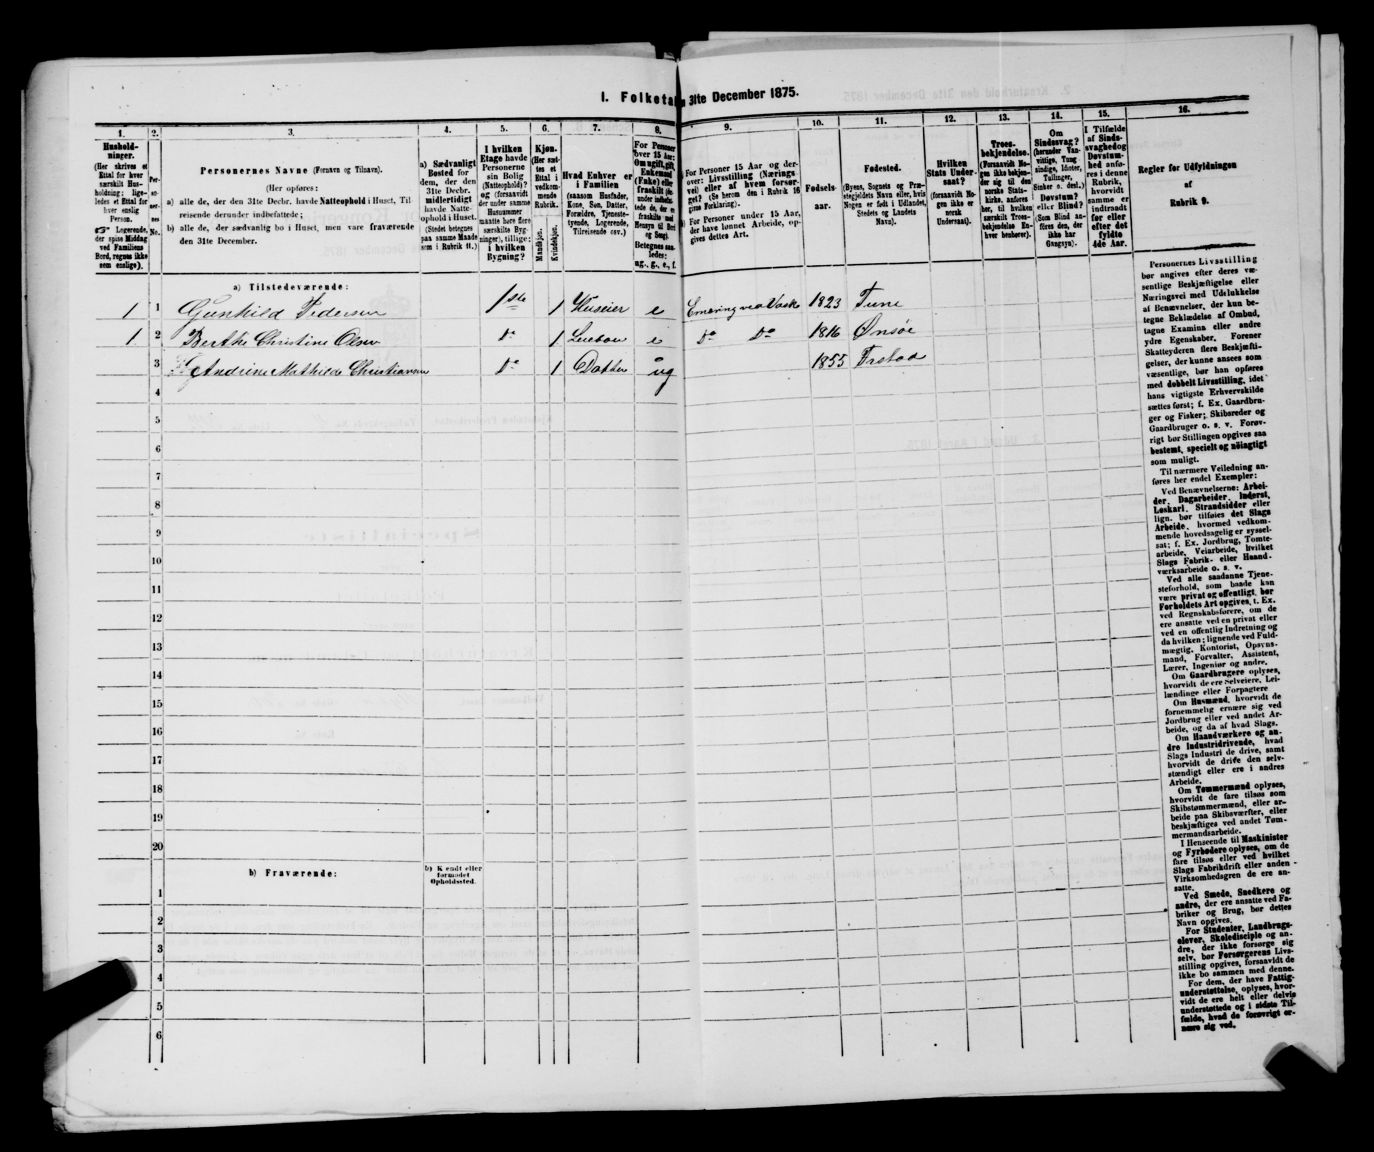 I. Folketal
n 31te December 1875.
1.
2.
3.
4.
5.
6.
7.
8.
9.
10.
11.
12.
13.
14.
15.
16.
Hushold-
ninger.
(Her skrives et
Ettal for hver
særskilt Hus-
holdning; lige-
ledes et Ettal for
hver enslig
Person.
☞ Logerende,
der spise Middag
ved Familiens
Bord, regnes ikke
som enslige).
No.
Personernes Navne (Fornavn og Tilnavn).
(Her opføres:
a) alle de, der den 31te Decbr. havde Natteophold i Huset, Til
reisende derunder indbefattede;
b) alle de, der sædvanlig bo i Huset, men vare fraværende
den 31te December.
a) Sædvanligt
Bosted for
dem, der den
31te Decbr.
midlertidigt
havde Natte-
ophold i Huset.
(Stedet betegnes
paa samme Maade
som i Rubrik 11.)
I hvilken
Etage havde
Personerne
sin Bolig
(Natteophold)?
og (forsaavidt
der under samme
Husnummer
maatte høre flere
særskilte Byg-
ninger), tillige:
i hvilken
Bygning?
Kjøn.
(Her sæt-
tes et
Ettal i
vedkom-
mende
Rubrik.
Mandkjøn.
Kvindekjøn.
Hvad Enhver er
i Familien
(saasom Husfader,
Kone, Søn, Datter,
Forældre, Tjeneste-
tyende, Logerende,
Tilreisende osv.)
For Personer
over 15 Aar:
Om ugift, gift,
Enkemand
(Enke) eller
fraskilt
Betegnes saa-
ledes:
ug., g., e., f.
For Personer 15 Aar og der-
over: Livsstilling (Nærings
vei) eller af hvem forsør-
get? (Se herom den i Rubrik 16
givne Forklaring).
For Personer under 15 Aar,
der have lønnet Arbeide, op-
gives dettes Art.
Fødsels-
aar.
Fødested.
(Byens, Sognets og Præ-
stegjeldets Navn eller, hvis
Nogen er født i Udlandet,
Stedets og Landets
Navn).
Hvilken
Stats Under-
saat?
(forsaavidt No-
gen ikke er
norsk
Undersaat).
Troes-
bekjendelse.
(Forsaavidt No-
gen ikke bekjen-
der sig til den
norske Stats-
kirke, anføres
her, til hvilken
særskilt Troes-
bekjendelse En-
hver henhører).
Om
Sindssvag?
(herunder Van-
vittige, Tung-
sindige, Idioter,
Tullinger,
Sinker o. desl.)
Døvstum?
eller Blind?
(Som Blind an-
føres den, der
ikke har
Gangsyn).
I Tilfælde
af Sinds-
svaghed og
Døvstum-
hed anfø-
res i denne
Rubrik,
hvorvidt
samme er
indtraadt
før eller
efter det
fyldte
4de Aar.
Regler for Udfyldningen
af
Rubrik 9.
a) Tilstedeværende:
1 1 Gunhild Pedersen 1ste 1 Huseier e Ernæring ved Vask 1823 Tune
1 2 Berthe Christine Olsen Do 1 e Do Do 1816 Onsøe
3 Andrine Mathilde Christiansen Do 1 Datter ug 1855
4
5
6
7
8
9
10
11
12
13
14
15
16
17
18
19
20
b) Fraværende:
b) Kjendt eller
formodet
Opholdssted.
1
2
3
4
5
6
Personernes Livsstilling
bør angives efter deres væ-
sentlige Beskjæftigelse eller
Næringsvei med Udelukkelse
af Benævnelser, der kun be-
tegne Beklædelse af Ombud,
tagne Examina eller andre
ydre Egenskaber. Forener
Skatteyderen flere Beskjæfti-
gelser, der kunne ansees som
væsentlige, bør han opføres
med dobbelt Livsstilling, idet
hans vigtigste Erhvervskilde
sættes først; f. Ex. Gaardbru-
ger og Fisker; Skibsreder og
Gaardbruger o. s. v. Forøv-
rigt bør Stillingen opgives saa
bestemt, specielt og nöiagtigt
som muligt.
Til nærmere Veiledning an-
føres her endel Exempler:
Ved Benævnelserne: Arbei-
der, Dagarbeider, Inderst,
Løskarl, Strandsidder eller
lign. bør tilføies det Slags
Arbeide, hvormed vedkom-
mende hovedsagelig er syssel-
sat; f. Ex. Jordbrug, Tomte-
arbeide, Veiarbeide, hvilket
Slags Fabrik- eller Haand-
værksarbeide o. s. v.
Ved alle saadanne Tjene-
steforhold, som baade kan
være privat og offentligt, bør
Forholdets Art opgives, t. Ex.
ved Regnskabsførere, om de
ere ansatte ved en privat eller
ved en offentlig Indretning og
da hvilken; lignende ved Fuld-
mægtig, Kontorist, Opsyns-
mand, Forvalter, Assistent,
Lærer, Ingeniør og andre.
Om Gaardbrugere oplyses,
hvorvidt de ere Selveiere, Lei-
lændinge eller Forpagtere
Om Husmænd, hvorvidt de
fornemmelig ernære sig ved
Jordbrug eller ved andet Ar-
beide, og da af hvad Slags.
Om Haandværkere og an-
dre Industridrivende, hvad
Slags Industri de drive, samt
hvorvidt de drive den selv-
stændigt eller ere i andres
Arbeide.
Om Tømmermænd oplyses,
hvorvidt de fare tilsøs som
Skibstømmermænd, eller ar-
beide paa Skibsværfter, eller
beskjæftiges ved andet Tøm-
mermandsarbeide.
I Henseende til Maskinister
og Fyrbødere oplyses, om de
fare tilsøs eller ved hvilket
Slags Fabrikdrift eller anden
Virksomhedsgren de ere an-
satte.
Ved Smede, Snedkere og
andre, der ere ansatte ved Fa-
briker og Brug, bør dettes
Navn opgives.
For Studenter, Landbrugs-
elever, Skoledisciple og an-
dre, der ikke forsørge sig
selv, bør Forsørgerens Livs-
stilling opgives, forsaavidt de
ikke bo sammen med denne.
For dem, der have Fattig-
understøttelse, oplyses, hvor-
vidt de ere helt eller delvis
understøttede og i sidste Til-
fælde, hvad de forøvrigt er-
nære sig ved.